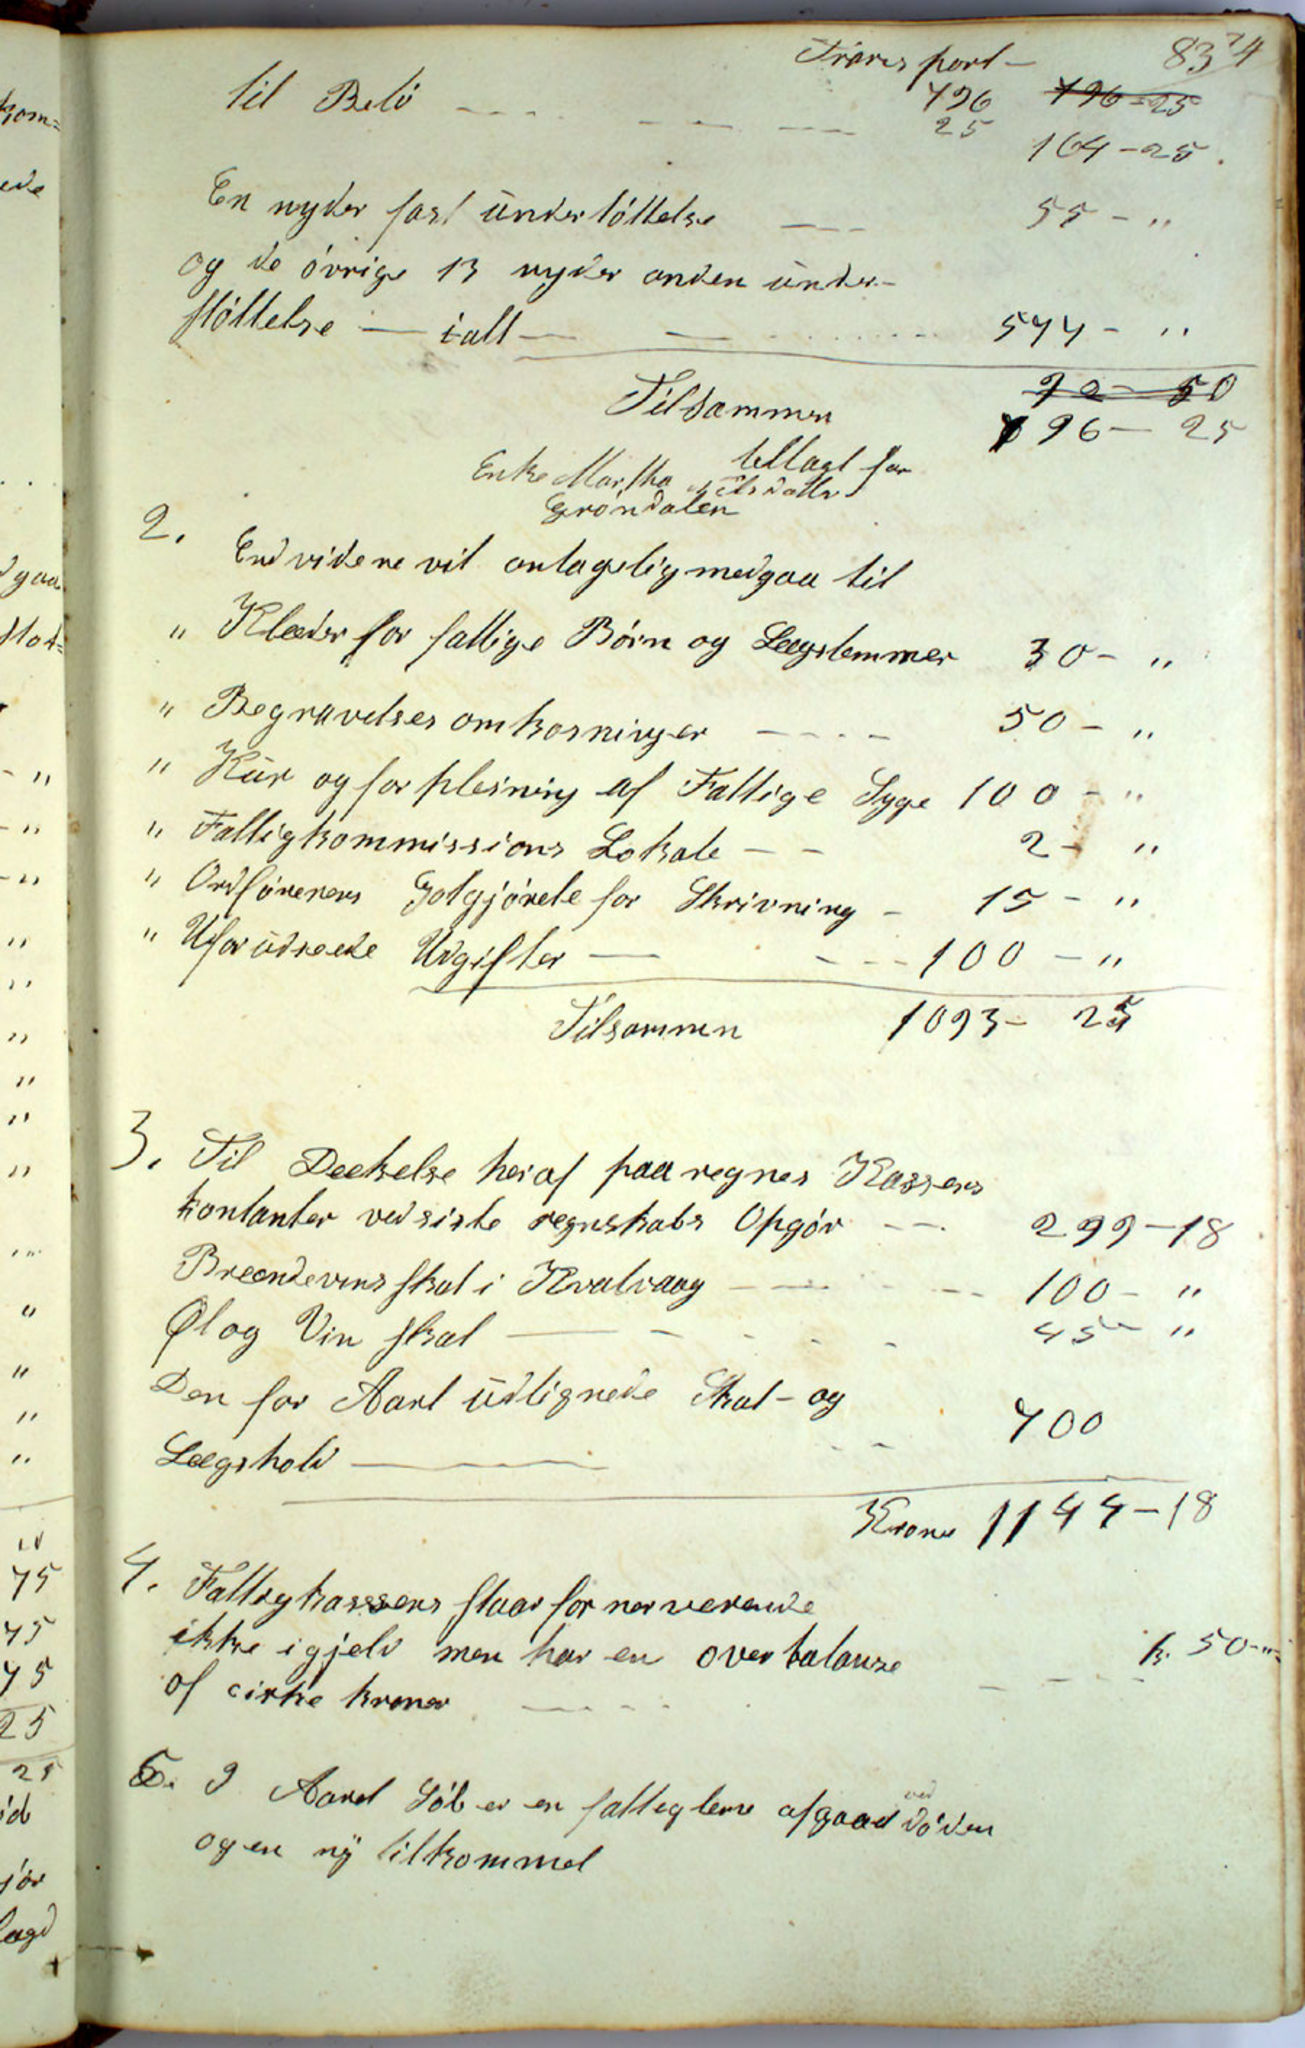 Transport - 83 74
til Belö - - - - - - 796 796-25
25 164-25
En nyder fast understöttelse - - 55 - "
og de övrige 13 nyder anden under-
stöttelse - ialt - - 577 - "
Tilsammen 72 - 50
796 - 25
tillagt for
Enke Martha Nilsdatter
Gröndalen
2. Endvidere vil antagelig medgaa til
" Klæder for fattige Börn og Lægslemmer 30 - "
" Begravelses omkosninger - - - 50 - "
" Kur og forpleining af Fattige Syge 100 - "
" Fattigkommissions Lokale - - 2 - "
" Ordförerens Gotgjörele for Skrivning - 15 - "
" Uforudseede Udgifter - - - - 100 - "
Tilsammen 1093 - 25
3. Til Deekelse heraf paaregnes Kassens
kontanter ved siste regnskabs Opgör - - 299-18
Brændevins skat i Kvalvaag - - - - 100 - "
Øl og Vin skat - - - - 45 - "
Den for Aaret udlignede Skat - og
Lægshold - - - 700
Kroner 1144-18
4. Fattigkassens staar for nerverende
ikke i gjeld men har en overbalanse
af cirke kroner - - - - k. 50-"
5. I Aarets Löb er en fattiglem afgaaed ved döden
og en ny tilkommet